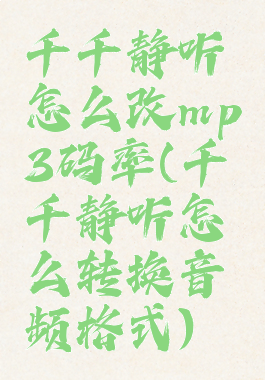 千千静听
怎么改mp
3码率(千
千静听怎
么转换音
频格式)